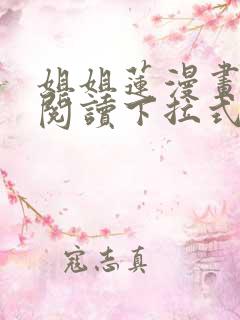 姐姐蓮漫畫
閱讀下拉式
寇志真